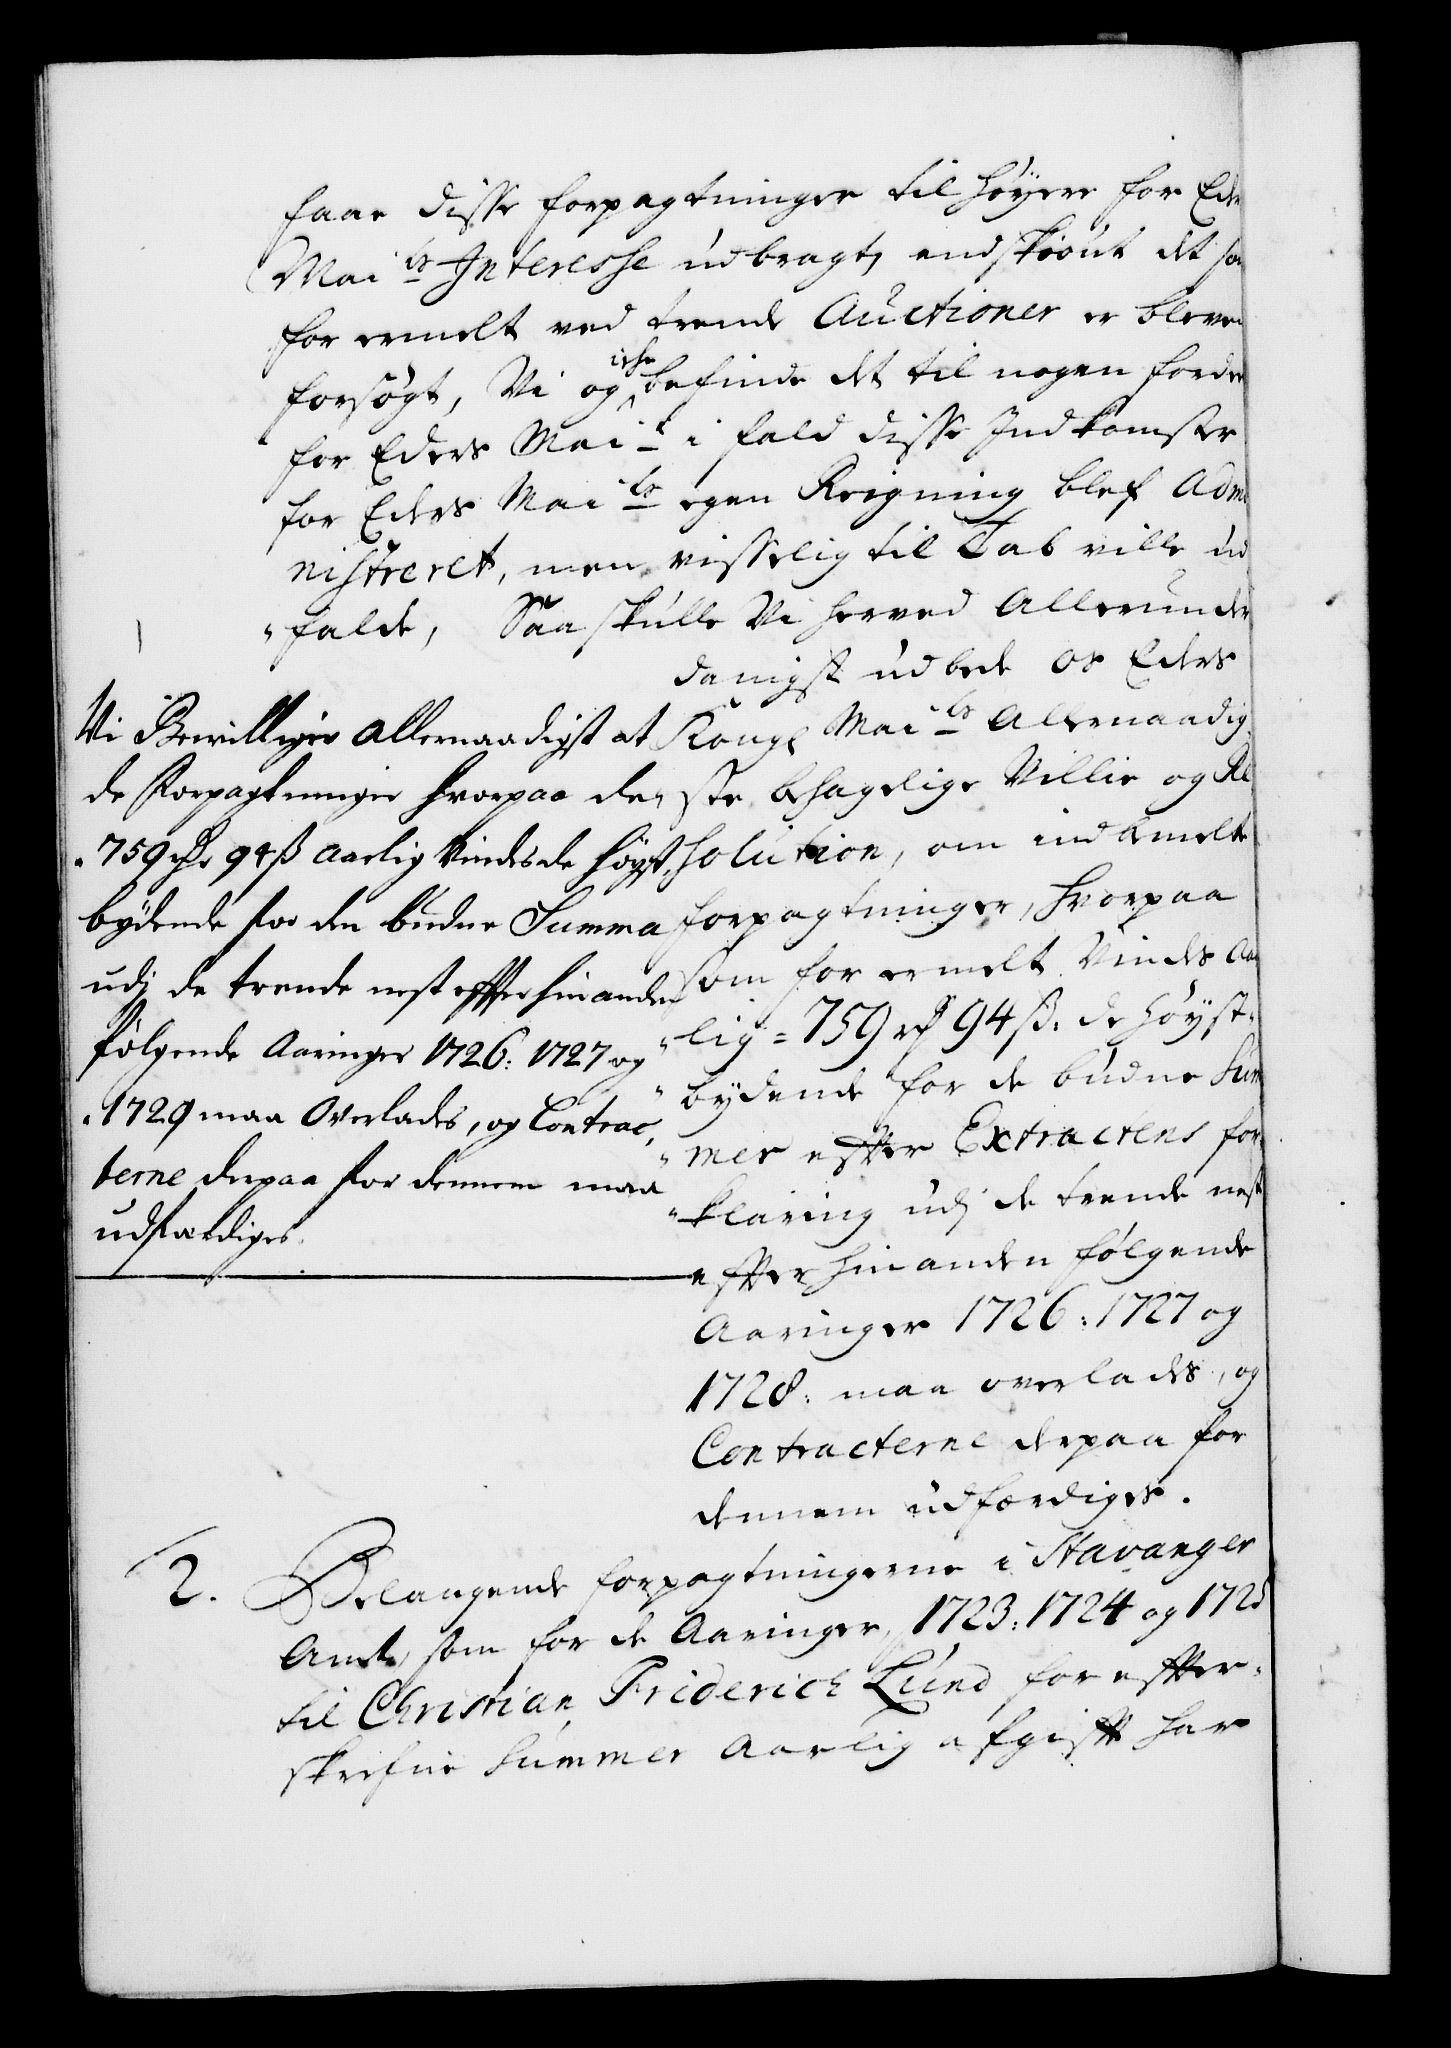 faae disse forpagtninger til høyere for Eder
Mai.ts Interesse udbragt, endskiønt det saa
for ermelt ved trende Auctioner er bleven
forsøgt, Vi og iche befinde det til nogen fordeel
for Eders Mai.t i fald disse Indkomster
for Eders Mai.ts egen Reigning blef Admi
nistreret, men visselig til Tab ville ud
"falde, Saa skulle Vi herved Allerunder
danigst udbede os Eders
Kongl Mai.ts Allernaadig
ste behagelige Villie og Re
solution, om indbemelte
forpagtninger, hvorpaa
som for ermelt Vindes Aar
"lig = 759 rd 94 ß. de høyst-
"bydende for de budne Sum
"mer effter Extractens for-
"klaring udj de trende nest
effter hinanden følgende
Aaringer 1726: 1727 og
1728: maa overlades, og
Contracterne derpaa for
dennem udfærdiges.
Vi Bevilliger allernaadigst at
de Forpagtninger hvorpaa de
759 rdr 94 ß aarlig Vindes de høyst
bydende for den budne Summa
udj de trende nest effter hinanden
følgende Aaringer 1726: 1727 og
1729 maa Overlades, og Contrac,
terne derpaa for dennem maa
udfærdiges.
2. Belangende forpagtningerne i Stavanger
Amt, som for de Aaringer, 1723: 1724 og 1725
til Christian Friderich Lund for effter-
skrefne Summer Aarlig afgifft har